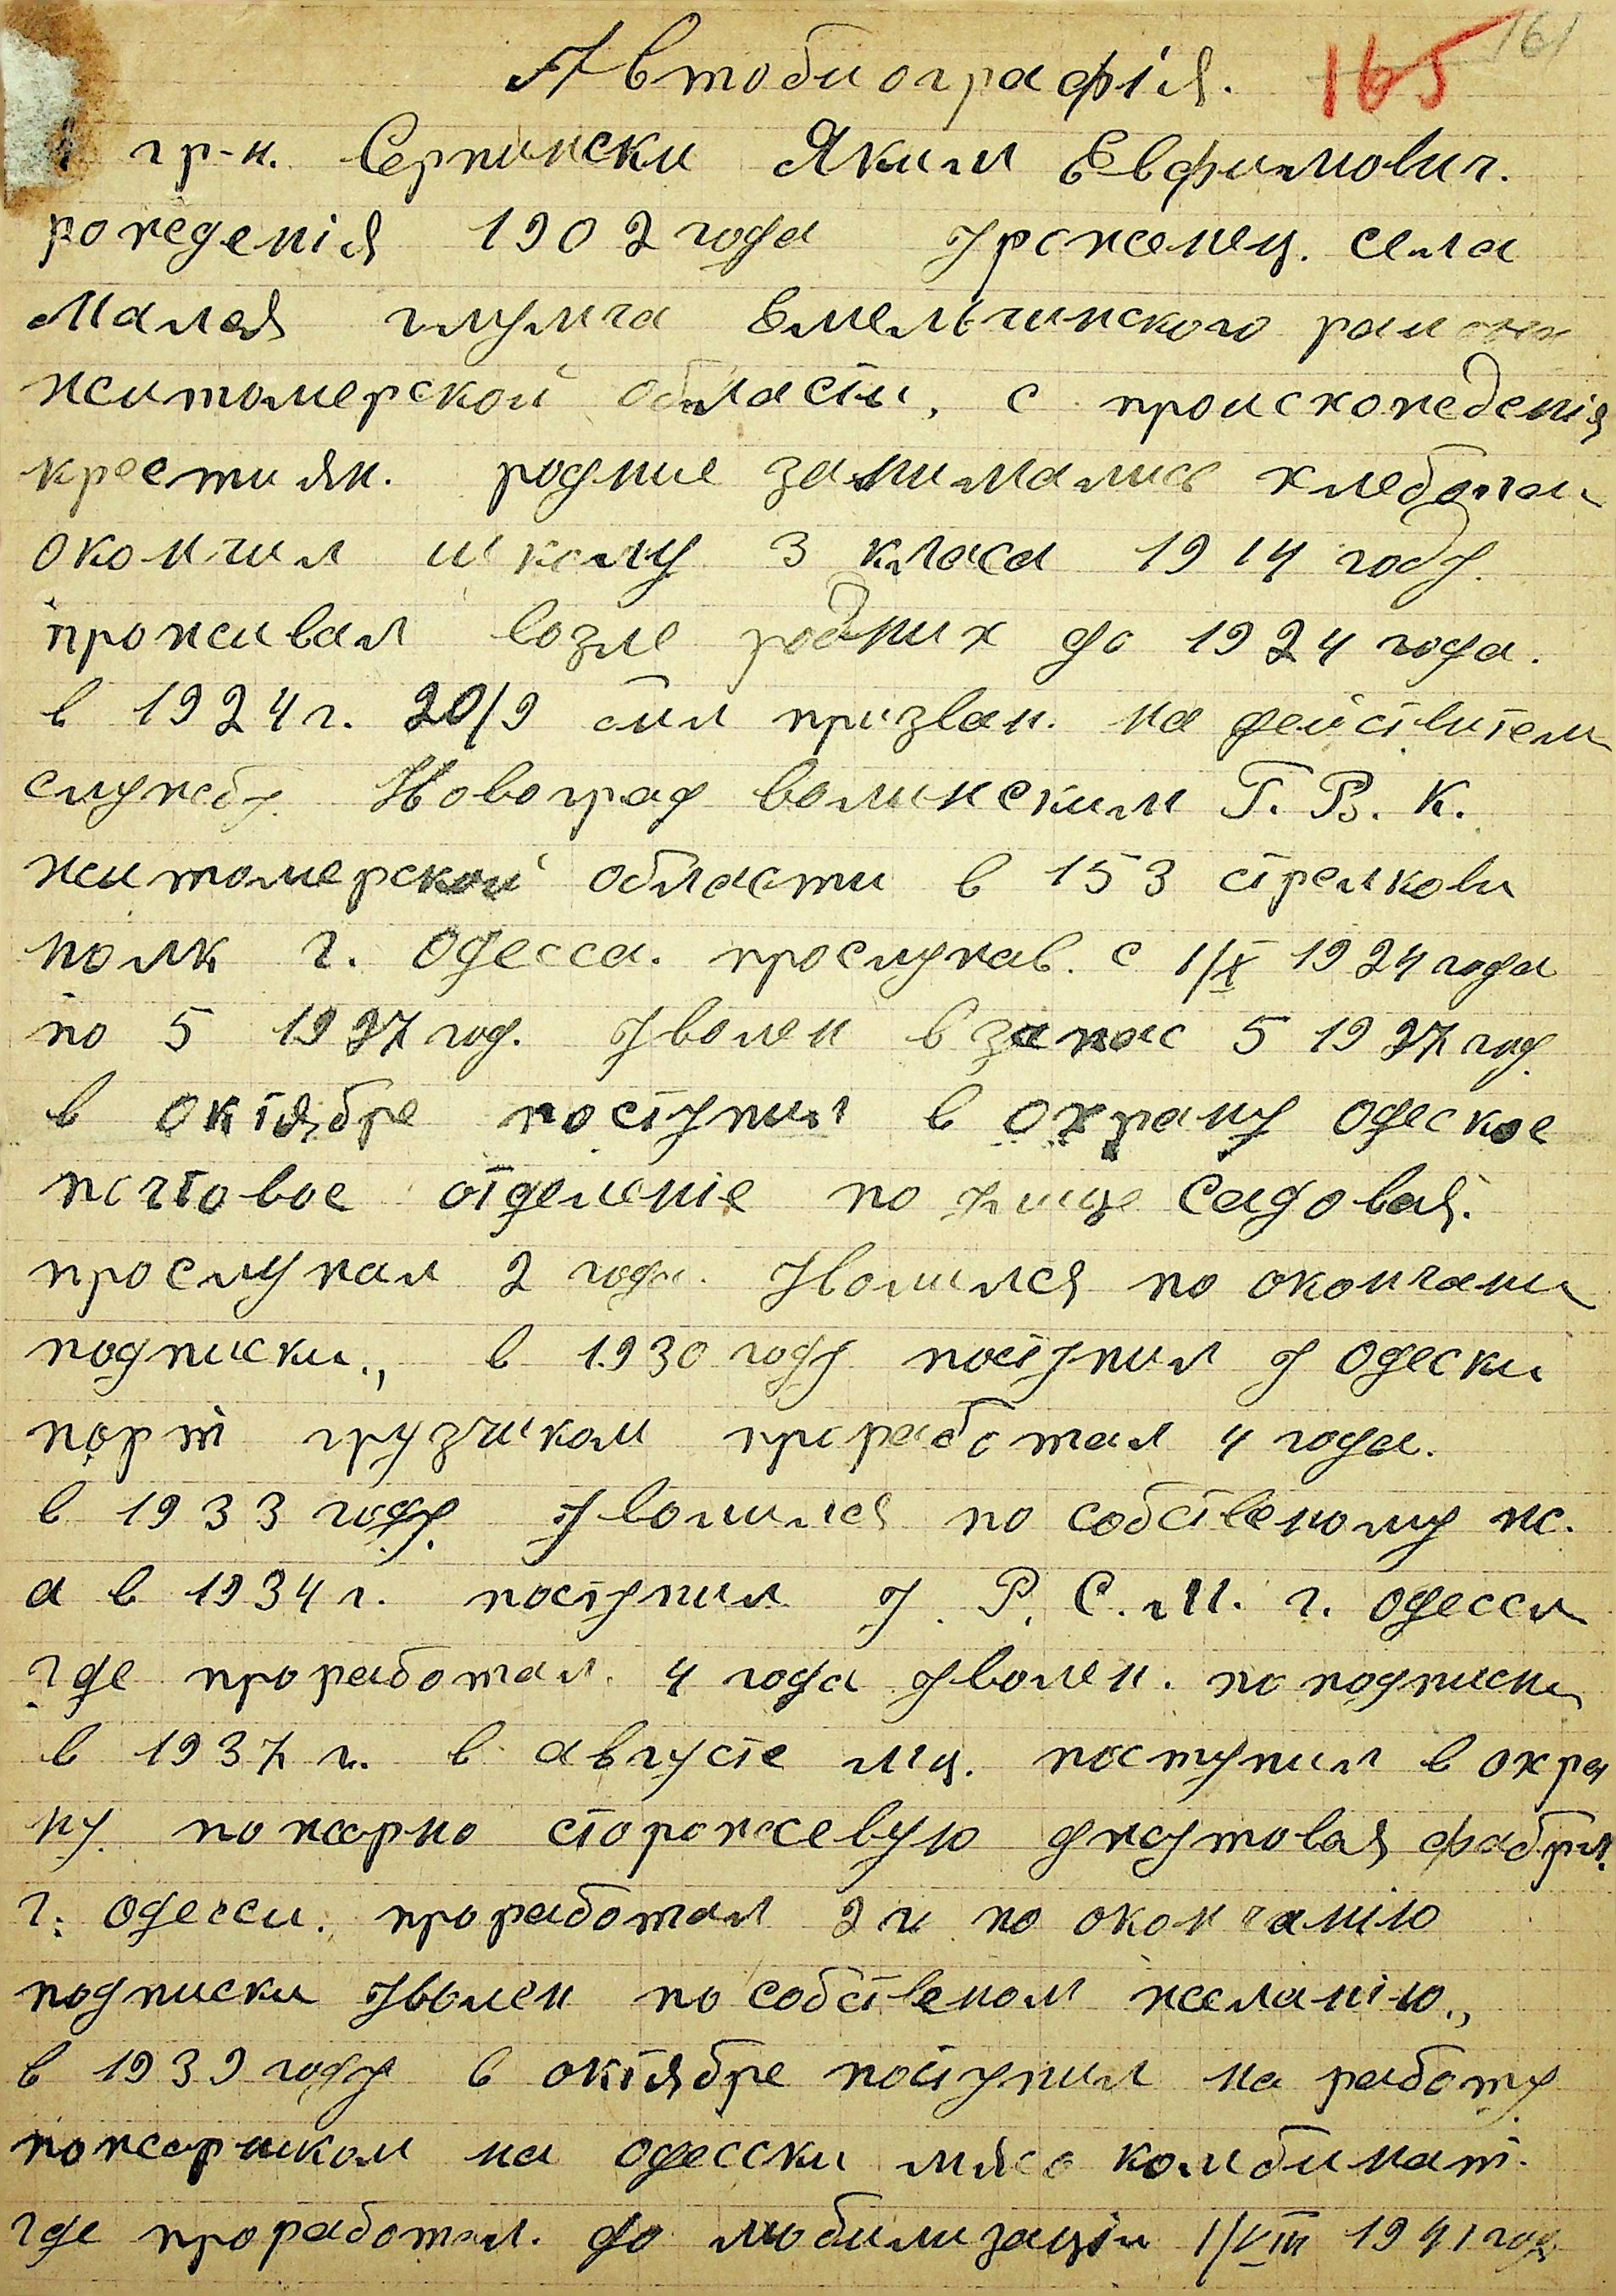 165 161
Автобиографія.
гр-н. Серпински Яким Евфимович.
рождения 1902 года урженец. села
Малая глумча Емельчинского раиона
житомерской области, с происхождения
крестиян. родние занимались хлебопаш
окончил школу 3 класа 1914 году.
проживал возле родних до 1924 года.
в 1924 г. 20/9 бил призван. на действителн
службу. Новоград волинским Г. В. К.
житомерской области в 153 стрелкови
полк г. Одесса. прослужав. с 1/X 1924 года
по 5 1927 год. уволен в запас 5 1927 год.
в октябре поступил в охрану одеское
почтовое отделеніе по улице Садовая.
прослужал 2 года. уволился по окончани
подписки., в 1930 году поступил у Одески
порт грузчиком проработал 4 года.
в 1933 году. уволился по собственому ж.
а в 1934 г. поступил у. Р. С. М. г. Одесси
где проработал. 4 года уволен. по подписки
в 1937 г. в августе мц. поступил в охра
ну. пожарно сторожевую джутовая фабри.
г. Одесси. проработал 2 г по окончанію
подписки уволен по собственом желанію.,
в 1939 году в октябре поступил на работу
пожарником на одесски мясо комбинат.
где проработал. до мобилизаціи 1/VIII 1941 году